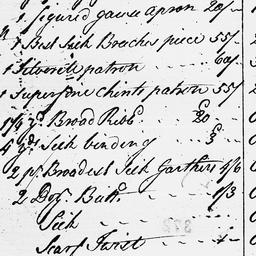 1 figured gause Apron 20/-
1 Best Silk Breeches piece 55/
1 patron 60/
1 Superfine Chints patron 55/
1½ yd Broad Ribb. 20
4 yds Silk binding 3
2 pr Broadest Silk Garthers 4/6
2 Doz. Butt. 1/3
Silk
Scarf Twist